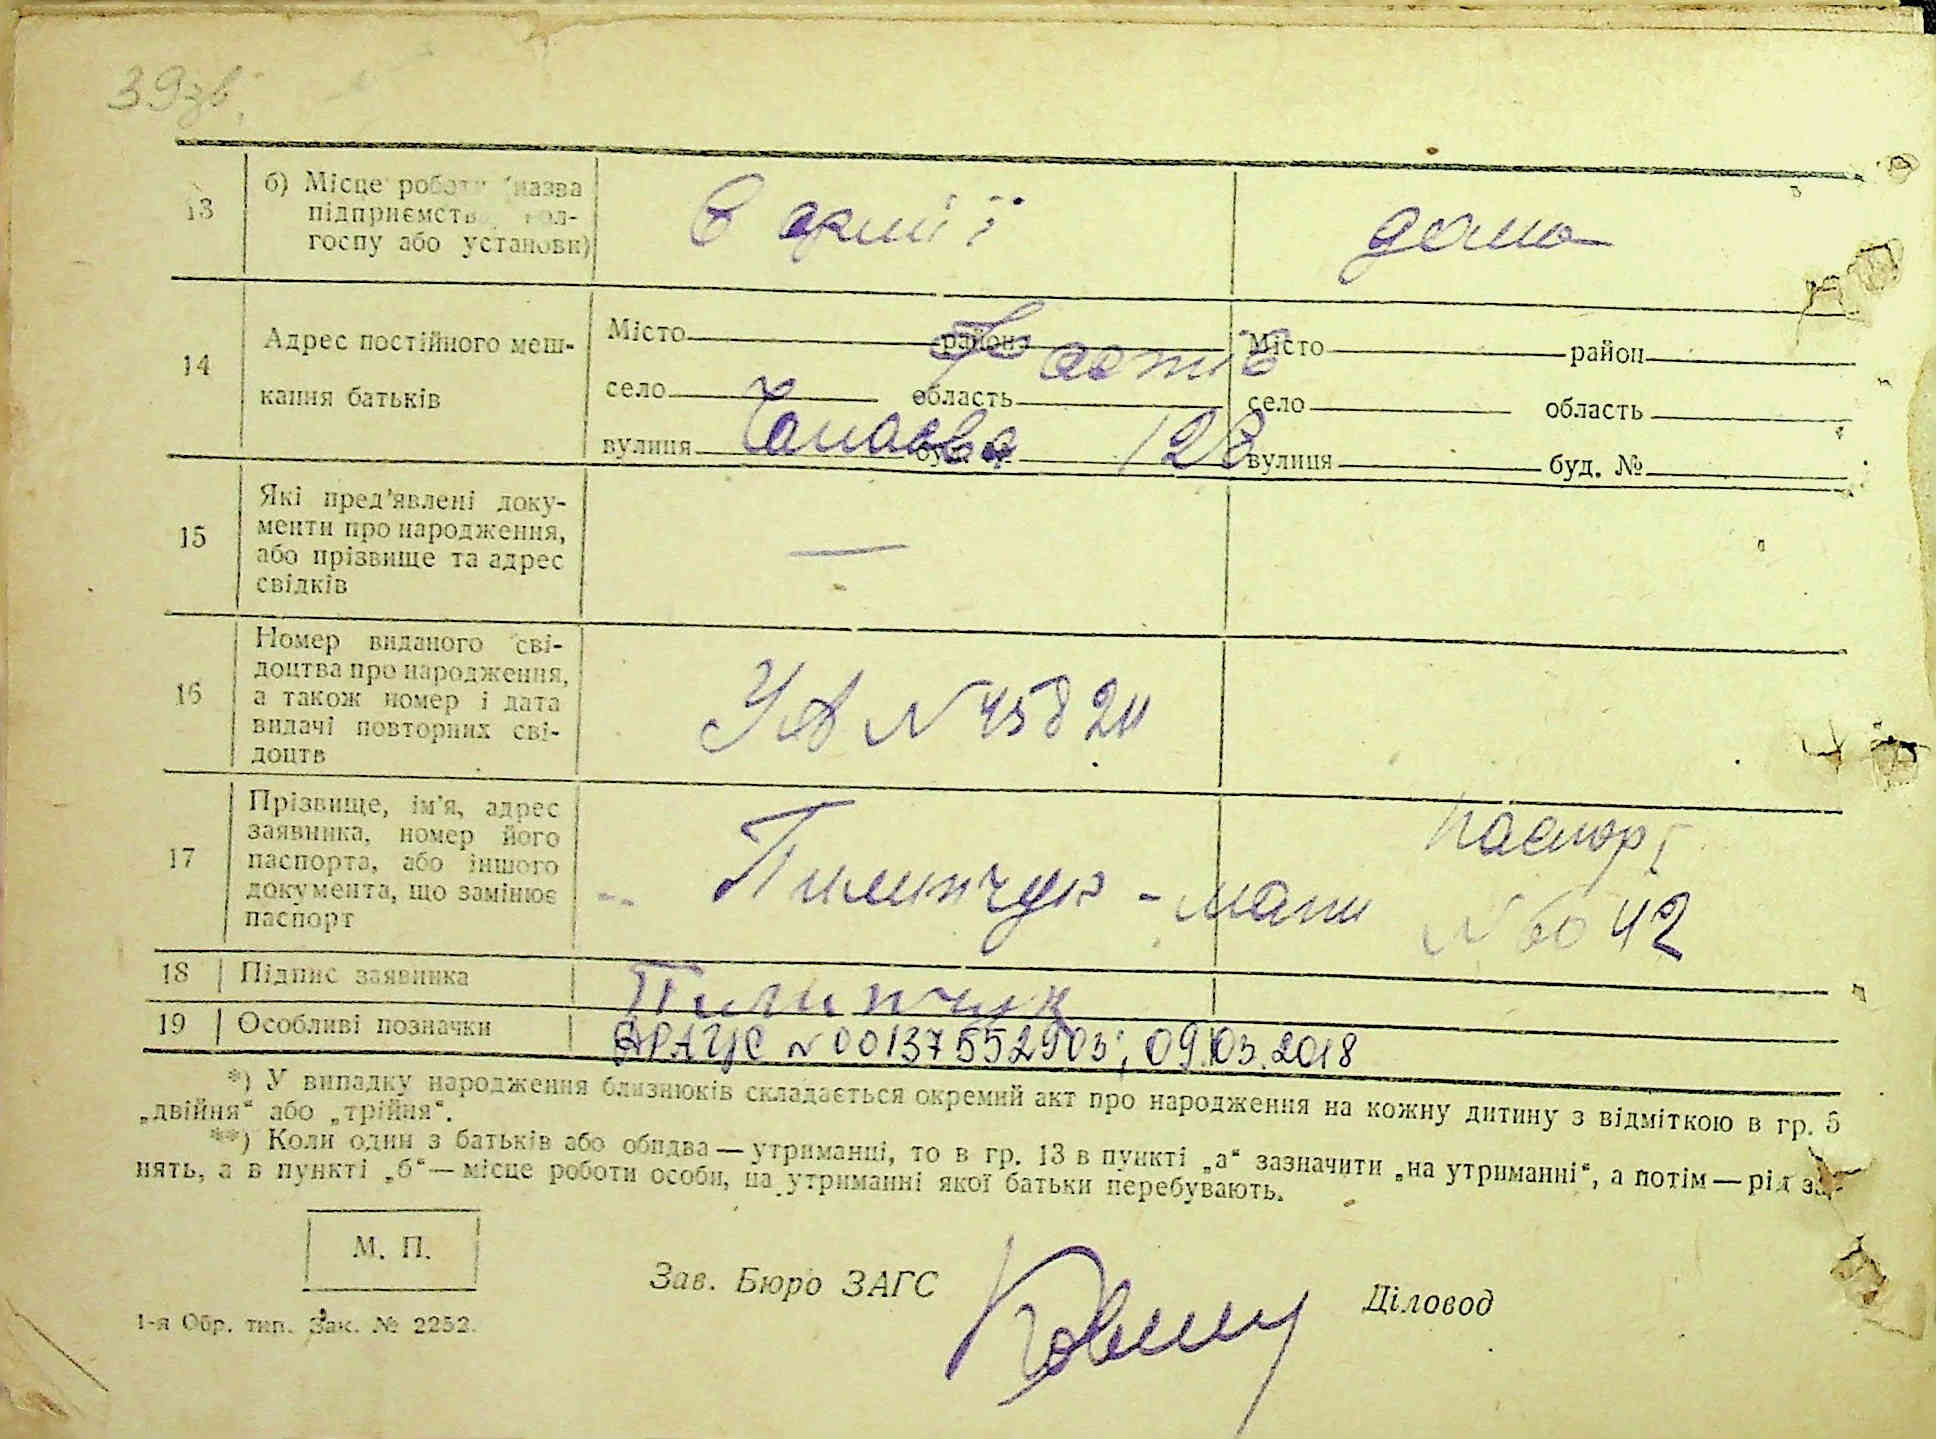 39зв.
13
б) Місце роботи (назва
підприємств, кол-
госпу або установи)
В армії
дома
14
Адрес постійного меш-
кання батьків
Місто район
село область
вулиця
Фастів
Чапаєва 128
Місто район
село область
вулиця буд. №
15
Які пред'явлені доку-
менти про народження,
або прізвище та адрес
свідків
—
16
Номер виданого сві-
доцтва про народження,
а також номер і дата
видачі повторних сві-
доцтв
УА №
17
Прізвище, ім'я, адрес
заявника, номер його
паспорта, або іншого
документа, що замінює
паспорт
Пилипчук - мати
паспорт
№ 6042
18 Підпис заявника
Пилипчук
19 Особливі позначки
ДРАЦС № 00137552903; 09.03.2018
*) У випадку народження близнюків складається окремий акт про народження на кожну дитину з відміткою в гр. 5
„двійня“ або „трійня“.
**) Коли один з батьків або обидва — утриманні, то в гр. 13 в пункті „а“ зазначити „на утриманні“, а потім — рід за-
нять, а в пункті „б“ — місце роботи особи, на утриманні якої батьки перебувають.
М. П.
Зав. Бюро ЗАГС
Діловод
1-я Обр. тип. Зак. № 2252.